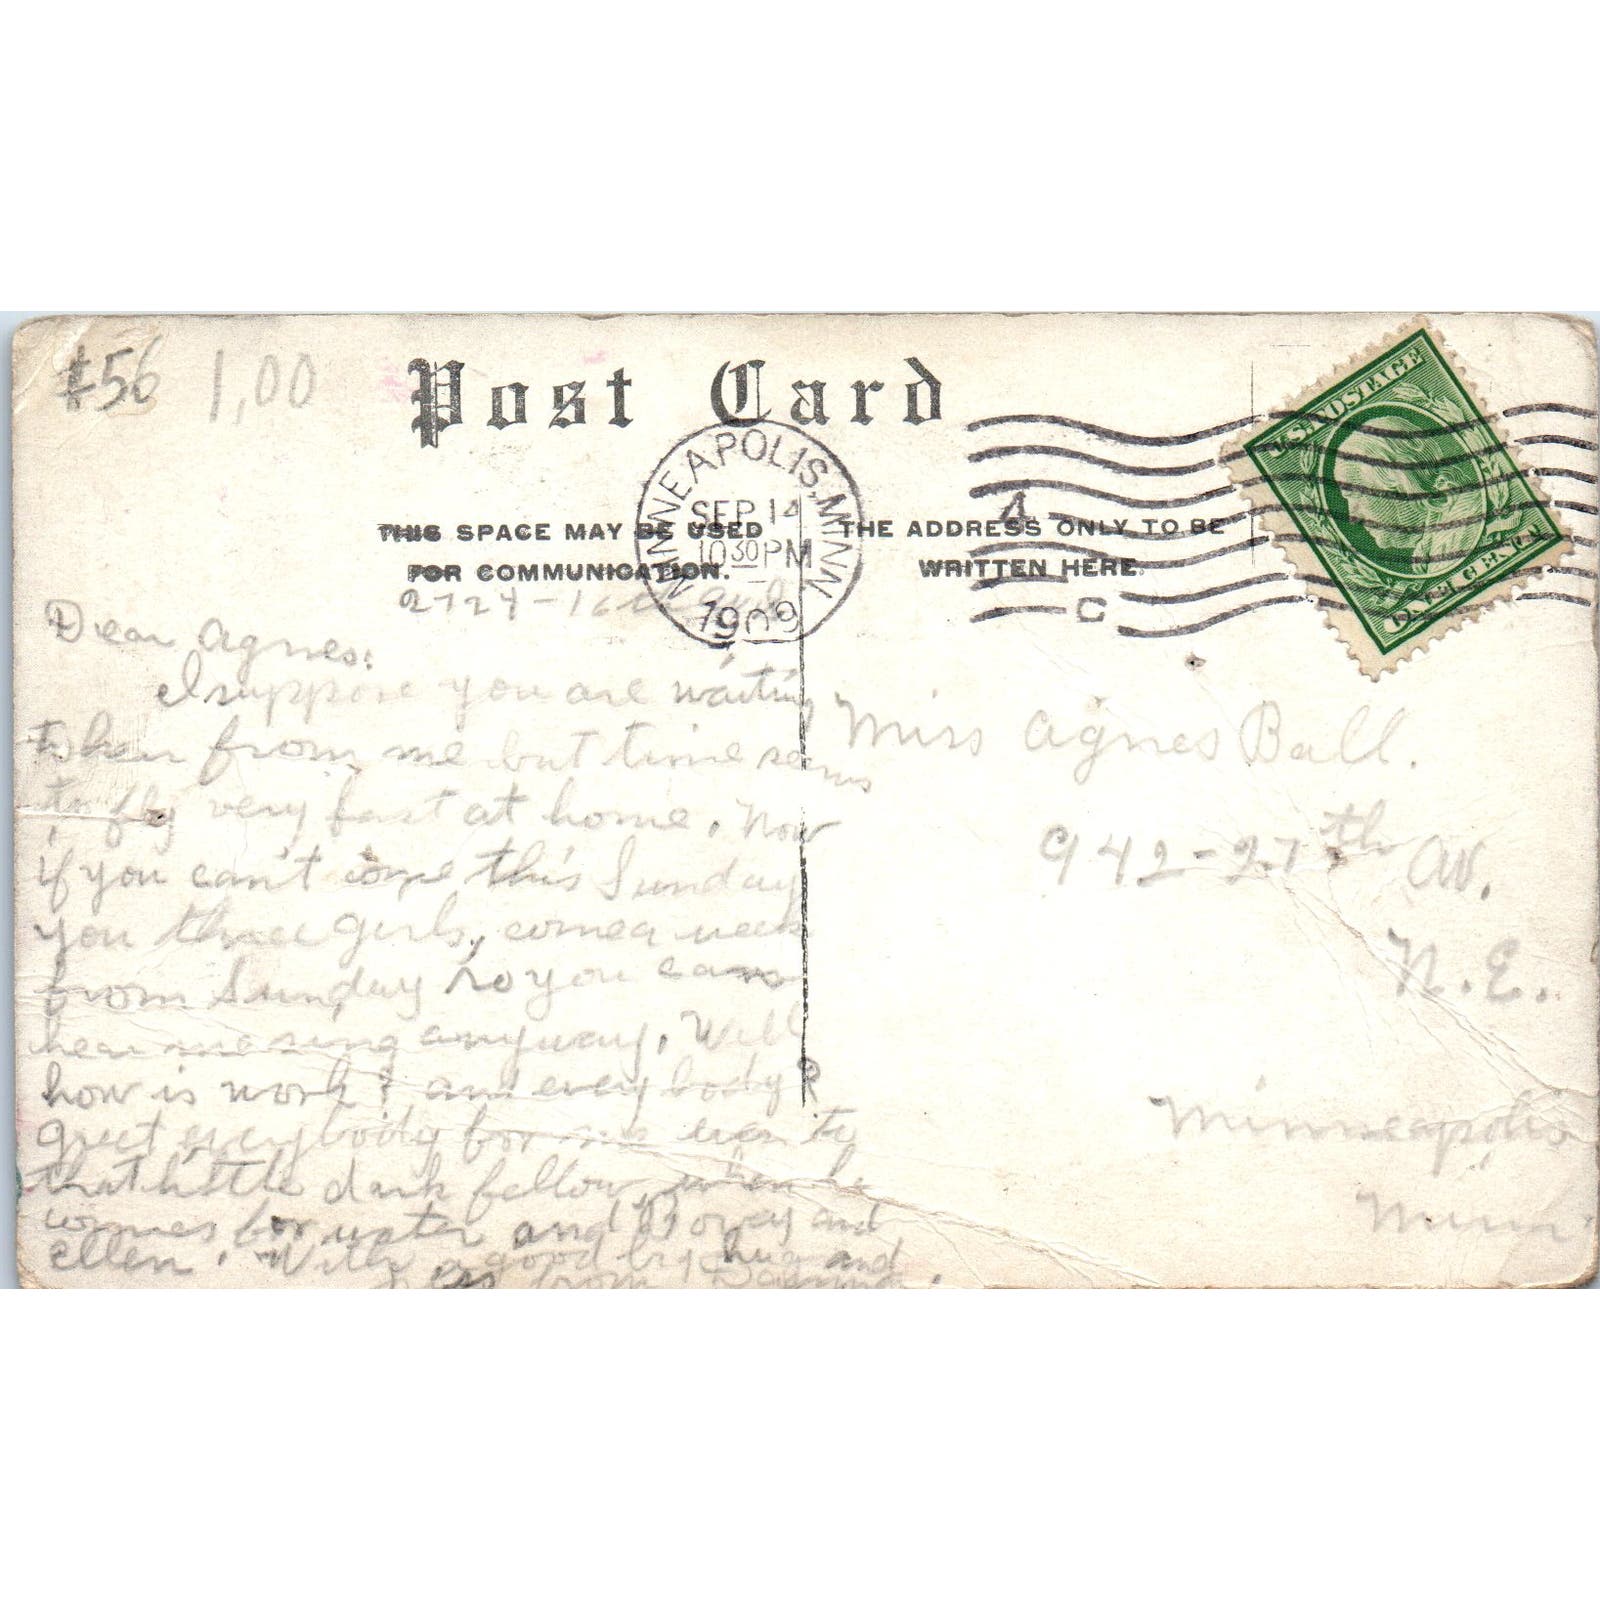 $56 1,00
Post Card
MINNEAPOLIS, MINN.
SEP 14
10 30 PM
1909
A
C
U.S. POSTAGE
ONE CENT
THIS SPACE MAY BE USED
FOR COMMUNICATION.
THE ADDRESS ONLY TO BE
WRITTEN HERE.
2724-16th
Dear Agnes:
I suppose you are waiting
to hear from me but time seems
to fly very fast at home. Now
if you can't come this Sunday
you three girls, come a week
from Sunday so you can
hear me sing anyway. Well
how is work? and everybody
greet everybody for me even to
that little dark fellow when he
comes for water and and
ellen. With a good big hug and
from
R
Miss Agnes Ball.
942-27th Av.
N.E.
Minneapolis
Minn.